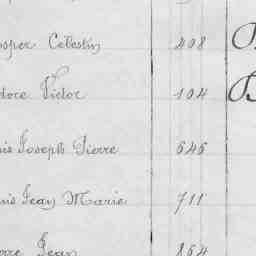 osper Celestin 408
dore Victor 104
uis Joseph Pierre 646
uis Jean Marie 711
erre Jean 864